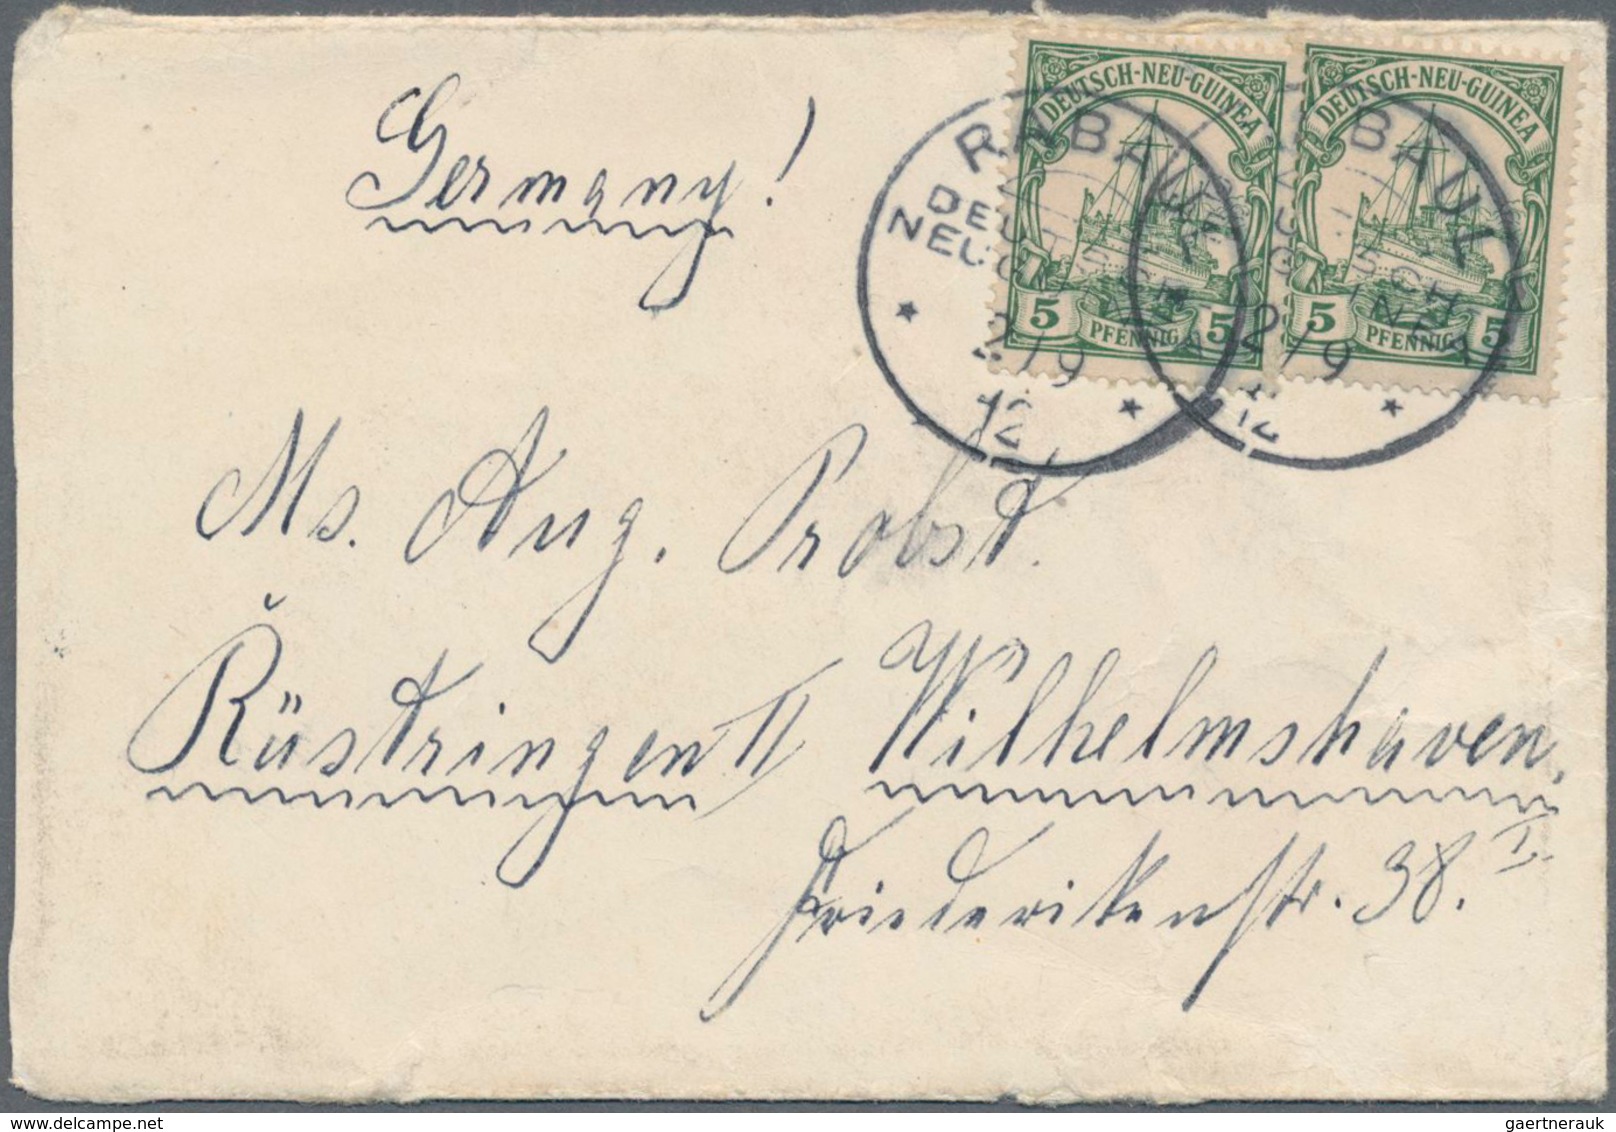 Germany!
DEUTSCH-NEU-GUINEA
5 PFENNIG 5
DEUTSCH-NEU-GUINEA
5 PFENNIG 5
RABAUL
DEUTSCH
NEUGUINEA
2/9
12
RABAUL
DEUTSCH
NEUGUINEA
2/9
12
Ms. Aug. Probst.
Rüstringen II Wilhelmshaven.
Friederikenstr. 38. I.
gaertnerauk